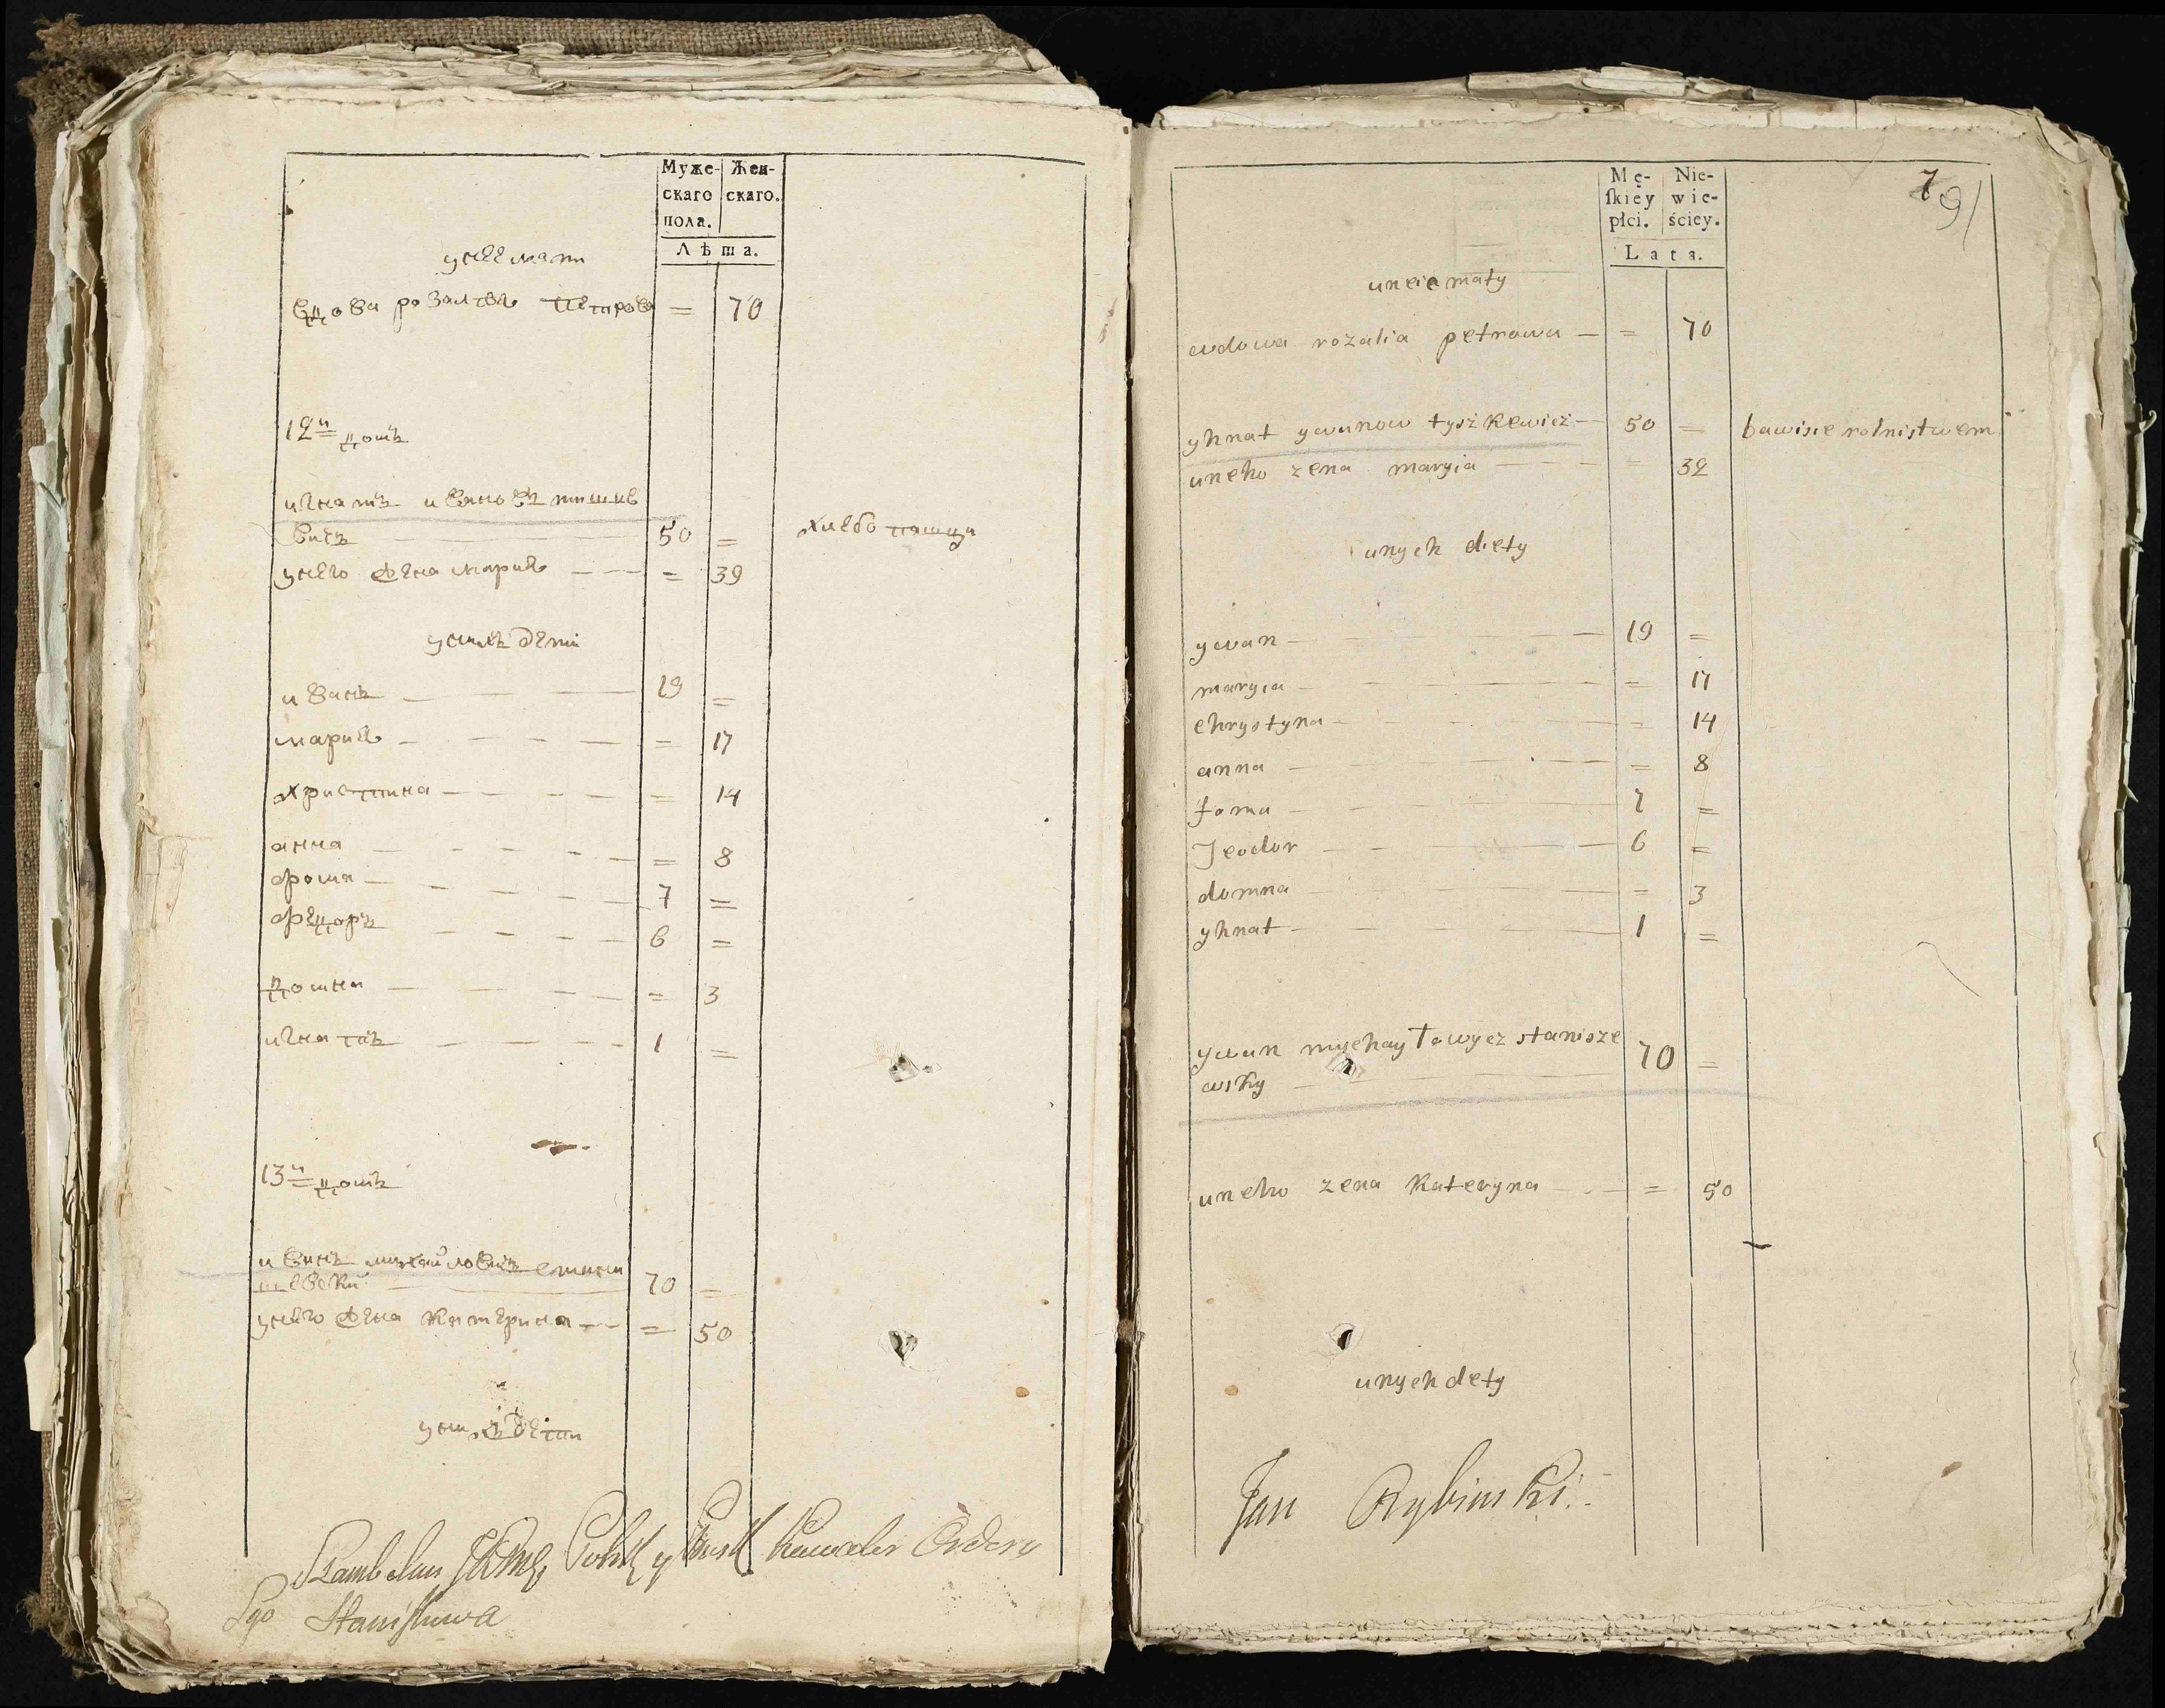 Муже- Жен-
скаго скаго.
пола.
Лѣта.
унее мати
вдова розалія петрова = 70
12й домъ
игнатъ ивановъ тишке
вичъ — 50 = хлебопашци
унего жена мария — = 39
унихъ дети
иванъ — 19 =
мария — = 17
христина — = 14
анна — = 8
фома — 7 =
федоръ — 6 =
домна — = 3
игнатъ — 1 =
13й домъ
иванъ михайловичъ стани
шевски — 70 =
унего жена катерина — = 50
унихъ дети
Szambelan Polsk y Kawaler Orderu
Sgo Stanisława
7
91
Mę- Nie-
ſkiey wie-
płci. ściey.
Lata.
uneie maty
wdowa rozalia petrowa — = 70
yhnat ywanow tyszkewicz — 50 = bawisie rolnistwem
uneho zena maryia — = 32
unych diety
ywan — 19 =
maryia — = 17
chrystyna — = 14
anna — = 8
foma — 7 =
Feodor — 6 =
domna — = 3
yhnat — 1 =
ywan mychayłowycz stanisze
wsky — 70 =
uneho zena Kateryna — = 50
unych dety
Jan Rybinski